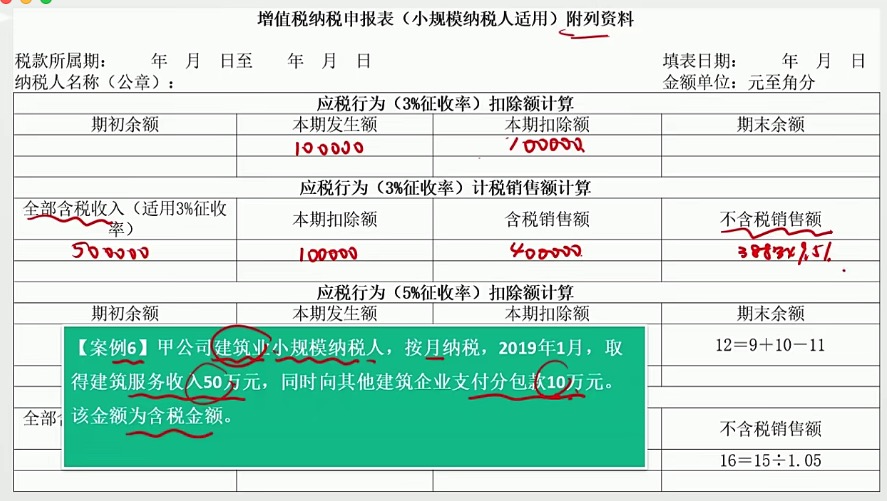 增值税纳税申报表（小规模纳税人适用）附列资料
税款所属期： 年 月 日至 年 月 日 填表日期： 年 月 日
纳税人名称（公章）： 金额单位：元至角分
应税行为（3%征收率）扣除额计算
期初余额 本期发生额 本期扣除额 期末余额
100000 100000
应税行为（3%征收率）计税销售额计算
全部含税收入（适用3%征收率） 本期扣除额 含税销售额 不含税销售额
500000 100000 400000
应税行为（5%征收率）扣除额计算
期初余额 本期发生额 本期扣除额 期末余额
12＝9＋10－11
【案例6】甲公司建筑业小规模纳税人，按月纳税，2019年1月，取
得建筑服务收入50万元，同时向其他建筑企业支付分包款10万元。
该金额为含税金额。
全部 不含税销售额
16＝15÷1.05